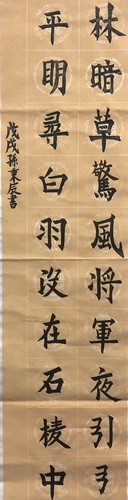 林暗草驚風將軍夜引弓
平明尋白羽沒在石棱中
戊戌孫東辰書